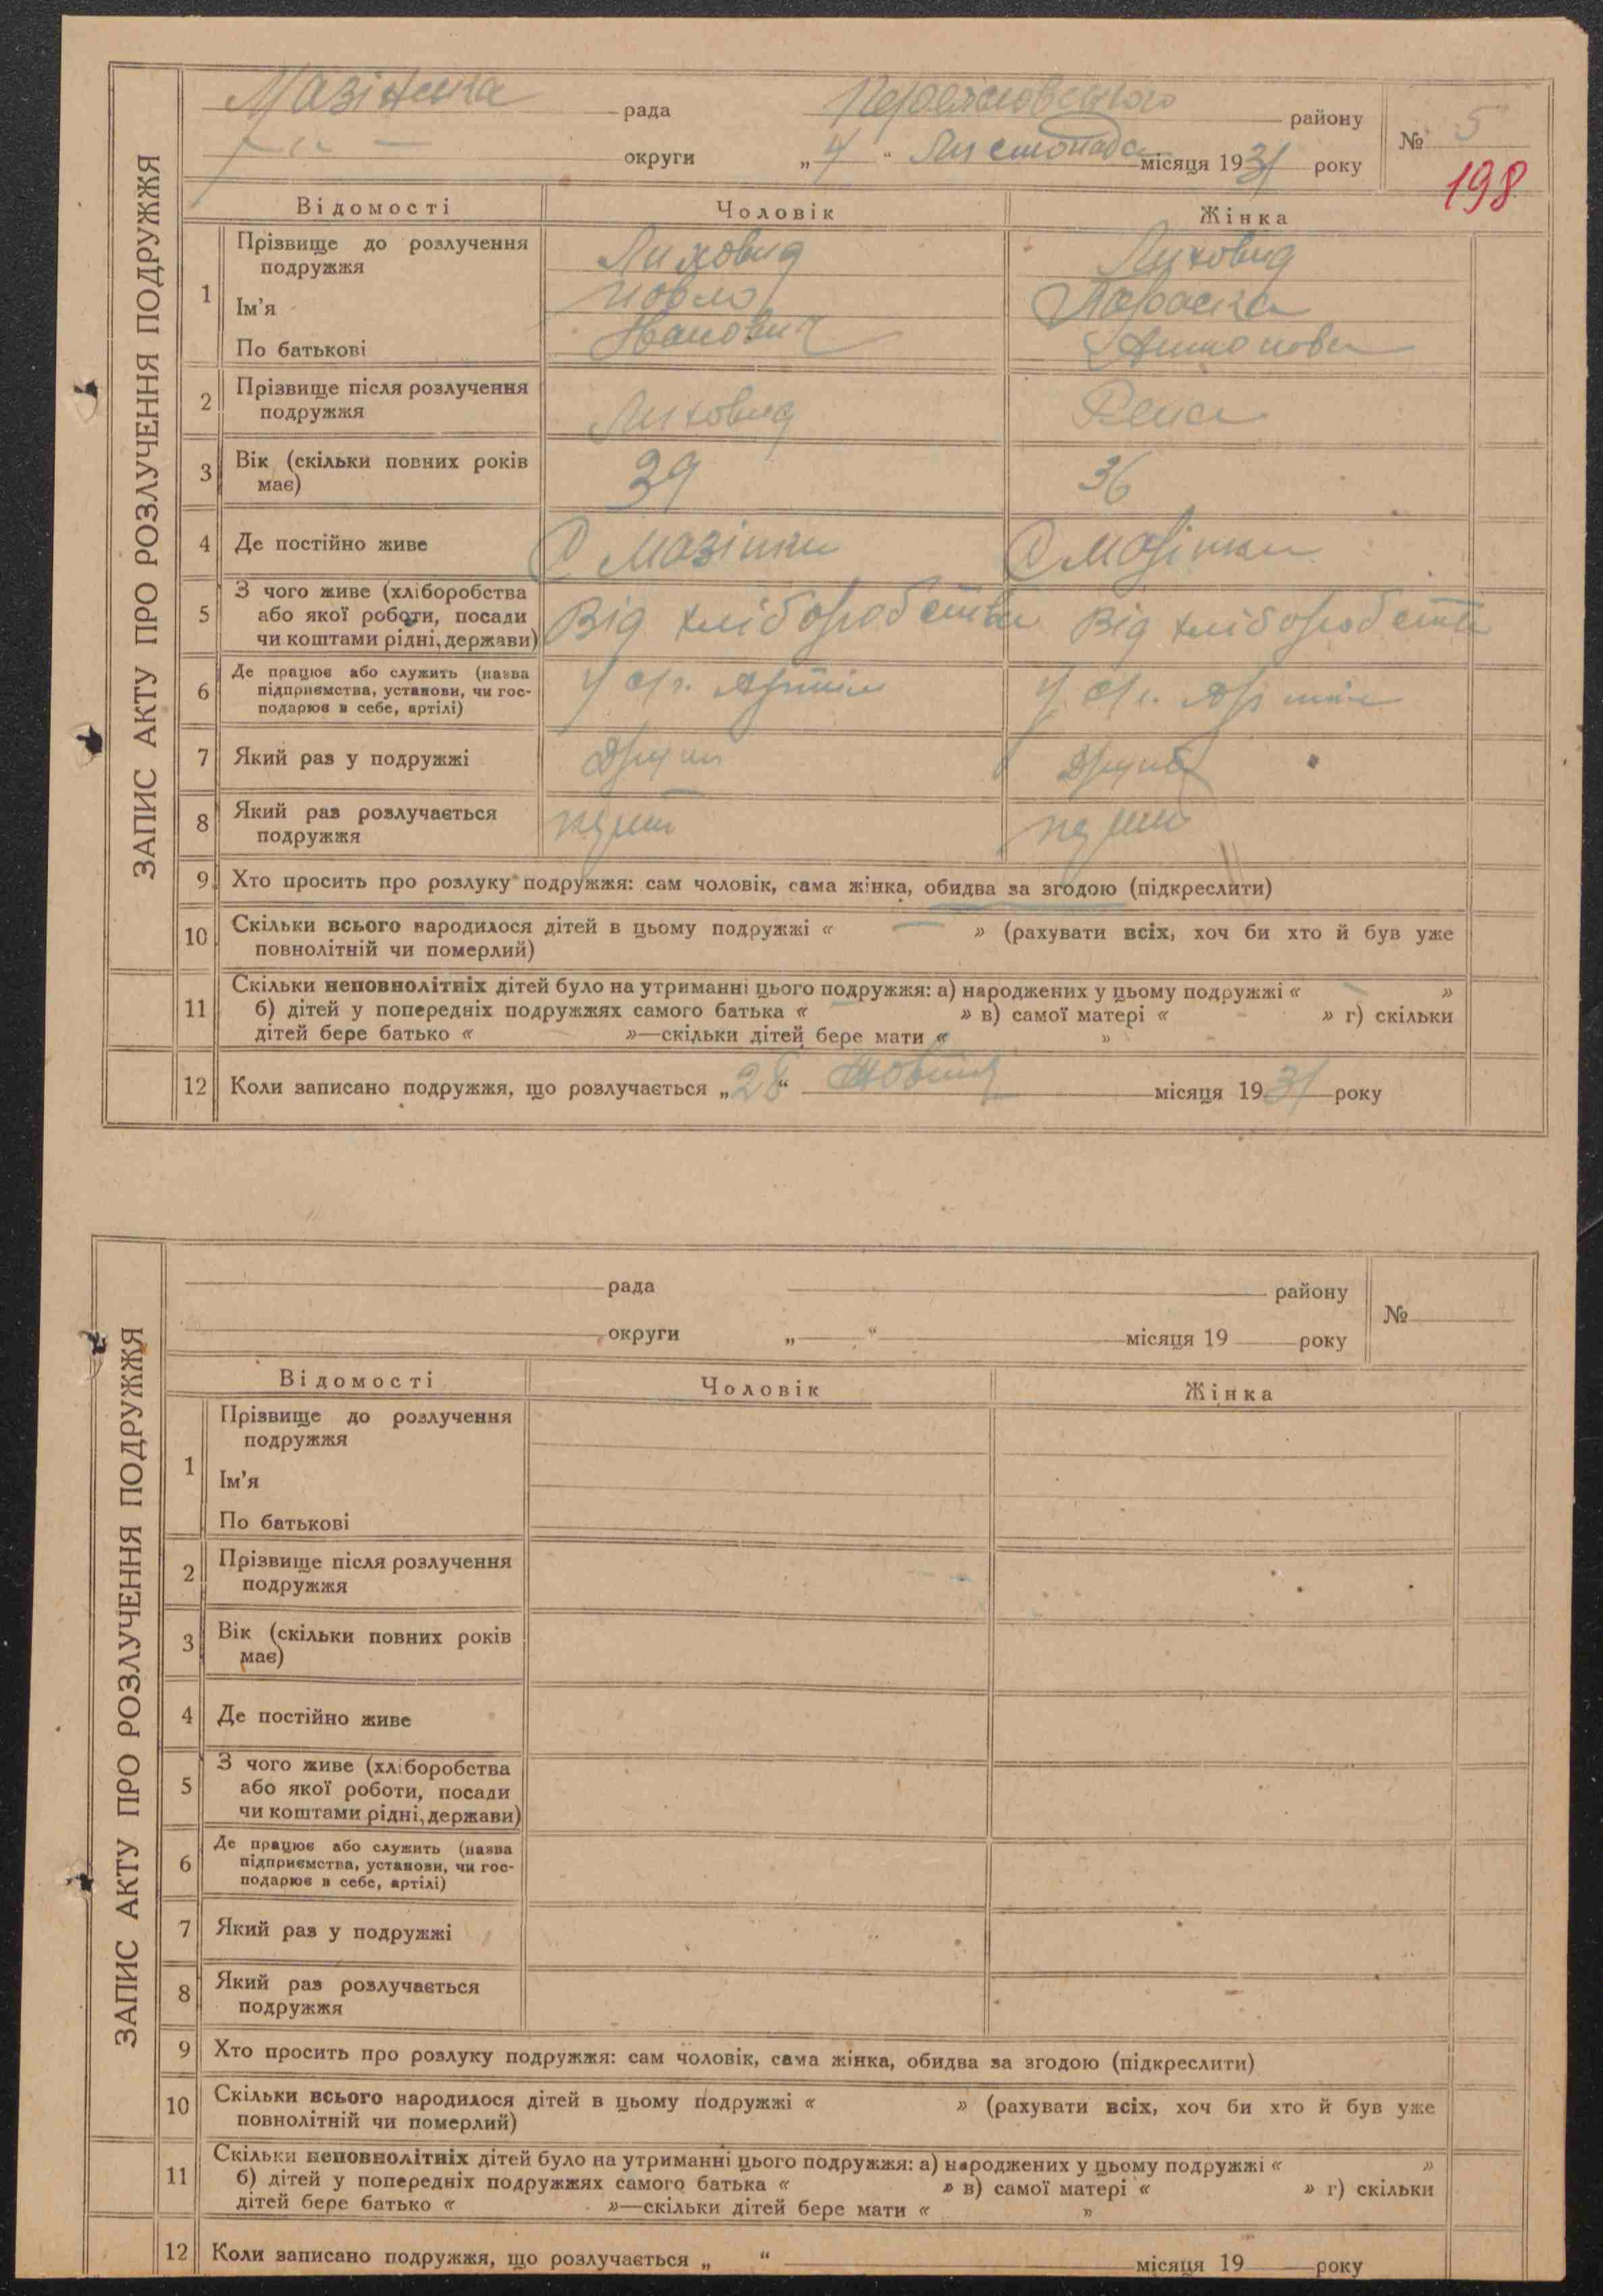 ЗАПИС АКТУ ПРО РОЗЛУЧЕННЯ ПОДРУЖЖЯ
Мазінська рада Переяславського району № 5
округи „ 4 “ Листопада місяця 1931 року
198
Відомості Чоловік Жінка
1 Прізвище до розлучення подружжя Лиховид Лиховид
Ім'я Павло Параска
По батькові Іванович Антонова
2 Прізвище після розлучення подружжя Лиховид
3 Вік (скільки повних років має) 39 36
4 Де постійно живе С Мазінки С Мазінки
5 З чого живе (хліборобства або якої роботи, посади чи коштами рідні, держави) Від хліборобства Від хліборобства
6 Де працює або служить (назва підприємства, установи, чи господарює в себе, артілі) У с/г. Артілі У с/г. Артілі
7 Який раз у подружжі Другий Другий
8 Який раз розлучається подружжя
9 Хто просить про розлуку подружжя: сам чоловік, сама жінка, обидва за згодою (підкреслити)
10 Скільки всього народилося дітей в цьому подружжі « — » (рахувати всіх, хоч би хто й був уже
повнолітній чи померлий)
11 Скільки неповнолітніх дітей було на утриманні цього подружжя: а) народжених у цьому подружжі « — »
б) дітей у попередніх подружжях самого батька « » в) самої матері « » г) скільки
дітей бере батько « »—скільки дітей бере мати « »
12 Коли записано подружжя, що розлучається „ 28 “ Жовтня місяця 1931 року
ЗАПИС АКТУ ПРО РОЗЛУЧЕННЯ ПОДРУЖЖЯ
рада району №
округи „ “ місяця 19 року
Відомості Чоловік Жінка
1 Прізвище до розлучення
подружжя
Ім'я
По батькові
2 Прізвище після розлучення
подружжя
3 Вік (скільки повних років
має)
4 Де постійно живе
5 З чого живе (хліборобства
або якої роботи, посади
чи коштами рідні, держави)
6 Де працює або служить (назва
підприємства, установи, чи гос-
подарює в себе, артілі)
7 Який раз у подружжі
8 Який раз розлучається
подружжя
9 Хто просить про розлуку подружжя: сам чоловік, сама жінка, обидва за згодою (підкреслити)
10 Скільки всього народилося дітей в цьому подружжі « » (рахувати всіх, хоч би хто й був уже
повнолітній чи померлий)
11 Скільки неповнолітніх дітей було на утриманні цього подружжя: а) народжених у цьому подружжі « »
б) дітей у попередніх подружжях самого батька « » в) самої матері « » г) скільки
дітей бере батько « »—скільки дітей бере мати « »
12 Коли записано подружжя, що розлучається „ “ місяця 19 року